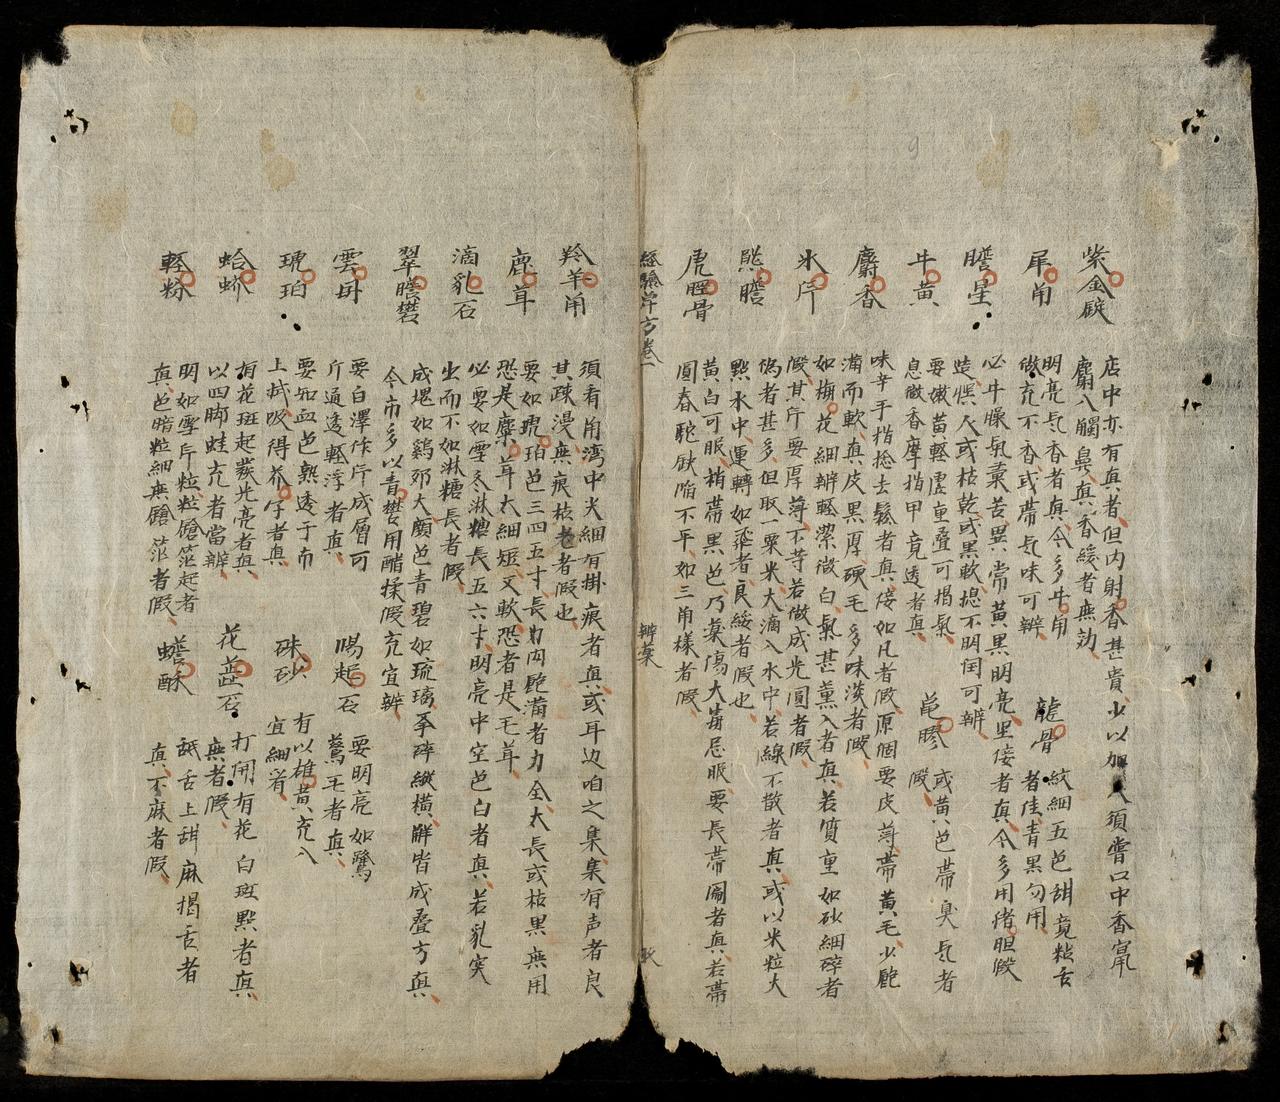 紫金錠
店中亦有真者但内射香甚貴少以加入須嘗口中香竄
麝入觸鼻真香緩者無効
犀角
明亮氣香者真今多牛角
做充不香或帶氣味可辨
龍骨
紋細五色甜竟粘舌
者佳青黑勿用
膽星
必牛臊氣藥苦異常黃黑明亮
黑人或枯乾或黑軟摁不明潤可辨
牛黃
要嫩黃輕虛重叠可揭氣
息微香摩指甲竟透者真
黽膠
或黃色帶臭氣者
假
麝香
味辛手指捻去鬆者真
滿而軟真皮黑厚硬毛多味淡者假
氷片
如梅花細辨輕潔微白氣甚薰人者真若質重如砂細碎者
假其片要厚薄不等若做成光圓者假
熊膽
偽者甚多但取一粟米大滴入水中若線不散者真或以米粒大
㸃水中運轉如飛者良緩者假也
虎脛骨
黃白可服稍帶黑色乃藥傷大毒忌服要長帶圓者真若帶
圓春駝缺陷不平如三角樣者假
經驗草方卷一
辨藥
羚羊角
須看角湾中尖細有掛痕者真或耳边咱之集集有声者良
其踈漫無痕枯老者假也
鹿茸
要如琥珀色三四五寸長力肉飽滿者力全大長或枯黑無用
恐是麋茸太細短又軟恐者是毛茸
滴乳石
必要如雪冬淋糖長五六寸明亮中空色白者真若乳突
出而不如淋糖長者假
翠膽礬
成塊如鷄卵大顏色青碧如琉璃手碎縱横解皆成叠方真
今市多以青礬用醋揉假充宜辨
雲母
要白澤作片成層可
斤通透輕浮者真
陽起石
要明亮如鷺
鷥毛者真
琥珀
要如血色熟透于布
上拭吸得芥子者真
硃砂
有以雄黃充入
宜細省
蛤蚧
有花斑起發光亮者真
以四脚蛙充者當辨
花蕋石
打開有花白斑㸃者真
無者假
輕粉
明如雪片粒粒磪茫起者
真色暗粒細無磪茫者假
蟾酥
舐舌上甜麻揭舌者
真不麻者假